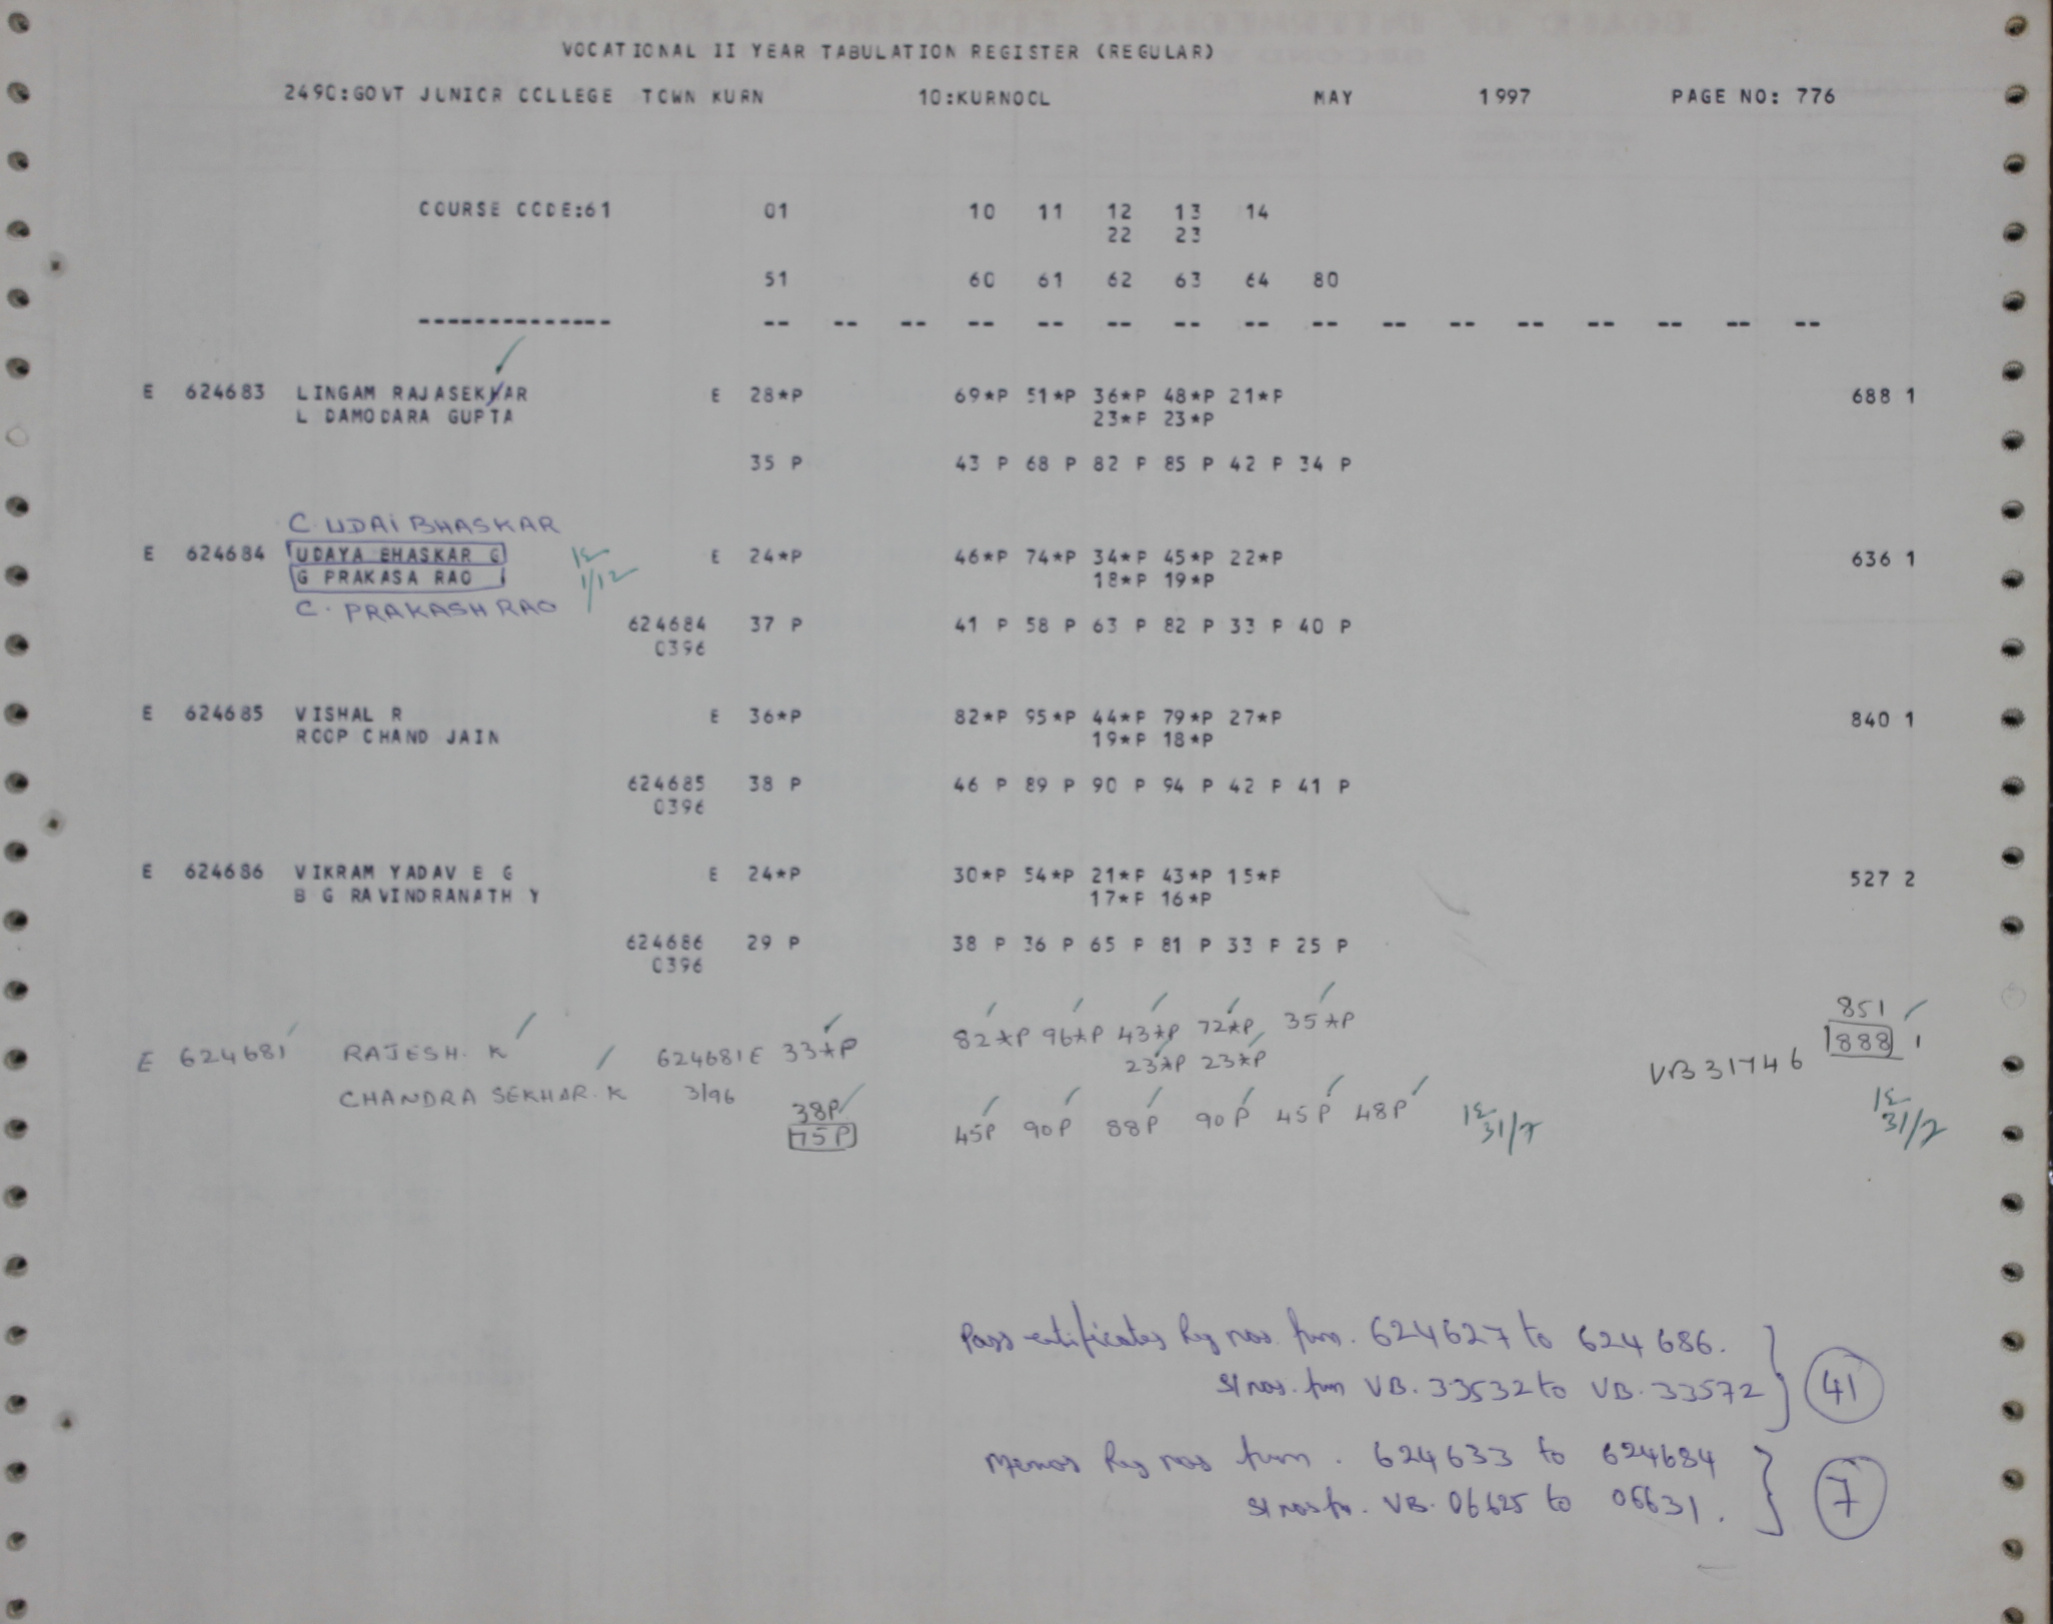 VOCATIONAL II YEAR TABULATION REGISTER (REGULAR)
2490:GOVT JUNIOR COLLEGE TOWN KURN 10:KURNOOL MAY 1997 PAGE NO: 776
COURSE CODE:61 01 10 11 12 13 14
22 23
51 60 61 62 63 64 80
-------------- -- -- -- -- -- -- -- -- -- -- -- -- -- -- -- --
E 624683 LINGAM RAJASEKHAR E 28*P 69*P 51*P 36*P 48*P 21*P 688 1
L DAMODARA GUPTA 23*P 23*P
35 P 43 P 68 P 82 P 85 P 42 P 34 P
C. UDAI BHASKAR
E 624684 UDAYA BHASKAR G E 24*P 46*P 74*P 34*P 45*P 22*P 636 1
G PRAKASA RAO 18*P 19*P
1/12
C. PRAKASH RAO
624684 37 P 41 P 58 P 63 P 82 P 33 P 40 P
0396
E 624685 VISHAL R E 36*P 82*P 95*P 44*P 79*P 27*P 840 1
ROOP CHAND JAIN 19*P 18*P
624685 38 P 46 P 89 P 90 P 94 P 42 P 41 P
0396
E 624686 VIKRAM YADAV B G E 24*P 30*P 54*P 21*P 43*P 15*P 527 2
B G RAVINDRANATH Y 17*P 16*P
624686 29 P 38 P 36 P 65 P 81 P 33 P 25 P
0396
851
E 624681 RAJESH. K 624681 E 33*P 82*P 96*P 43*P 72*P 35*P VB 31746 888 1
23*P 23*P
CHANDRA SEKHAR. K 3/96 38P 45P 90P 88P 90P 45P 48P 31/7 31/7
75 P
Pass certificates Reg nos. from. 624627 to 624686.
Sl nos. from VB. 33532 to VB. 33572 } 41
Memos Reg nos from. 624633 to 624684
Sl nos fr. VB. 06625 to 06631. } 7